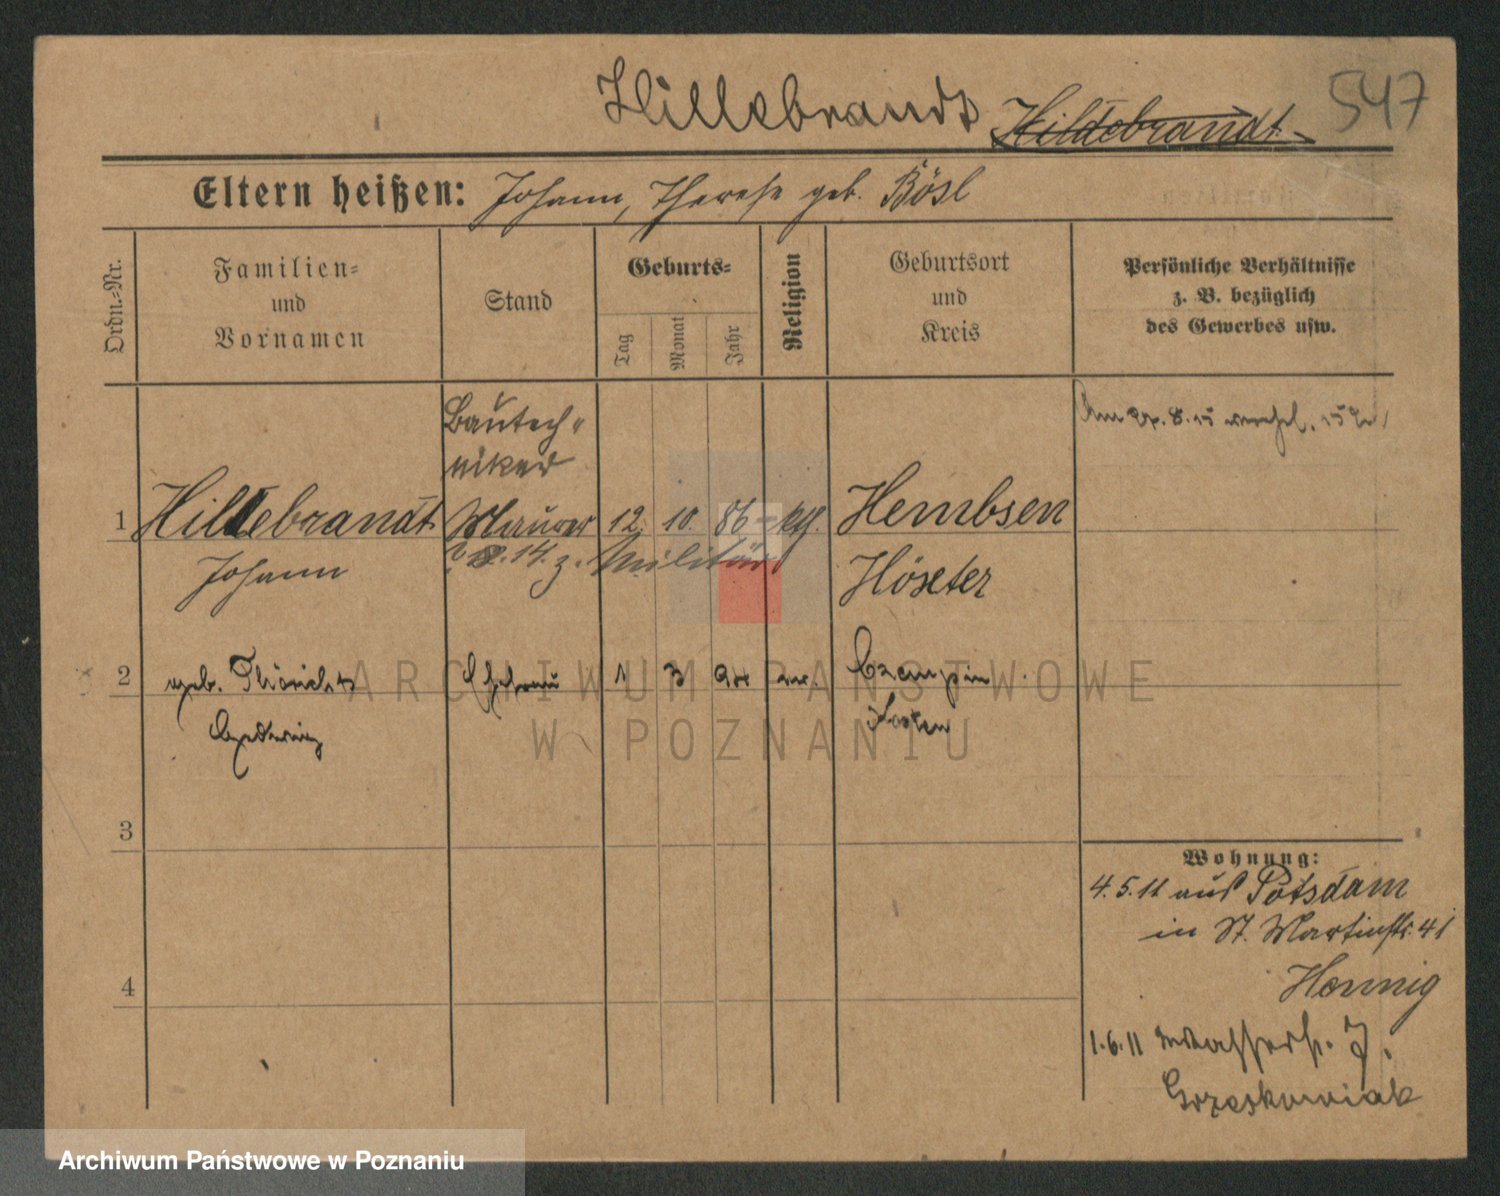 Hillebrandt Hildebrandt 547
Eltern heißen: Johann, Therese geb. Bösl
Ordn.-Nr.
Familien-
und
Vornamen
Stand
Geburts-
Tag
Monat
Jahr
Religion
Geburtsort
und
Kreis
Persönliche Verhältnisse
z. B. bezüglich
des Gewerbes usw.
Bautech-
niker
Am 8. 15
1 Hillebrandt Maurer 12. 10. 86 kth. Hembsen
Johann 14. z. Militär Höxter
2 geb. Ehefrau 1 3 Czempin
Hedwig Kosten
3
4
Wohnung:
4.5.11 aus Potsdam
in St. Martinstr. 41
Hennig
1.6.11 Wasserstr. 7.
Grzeskowiak
ARCHIWUM PAŃSTWOWE
W POZNANIU
Archiwum Państwowe w Poznaniu